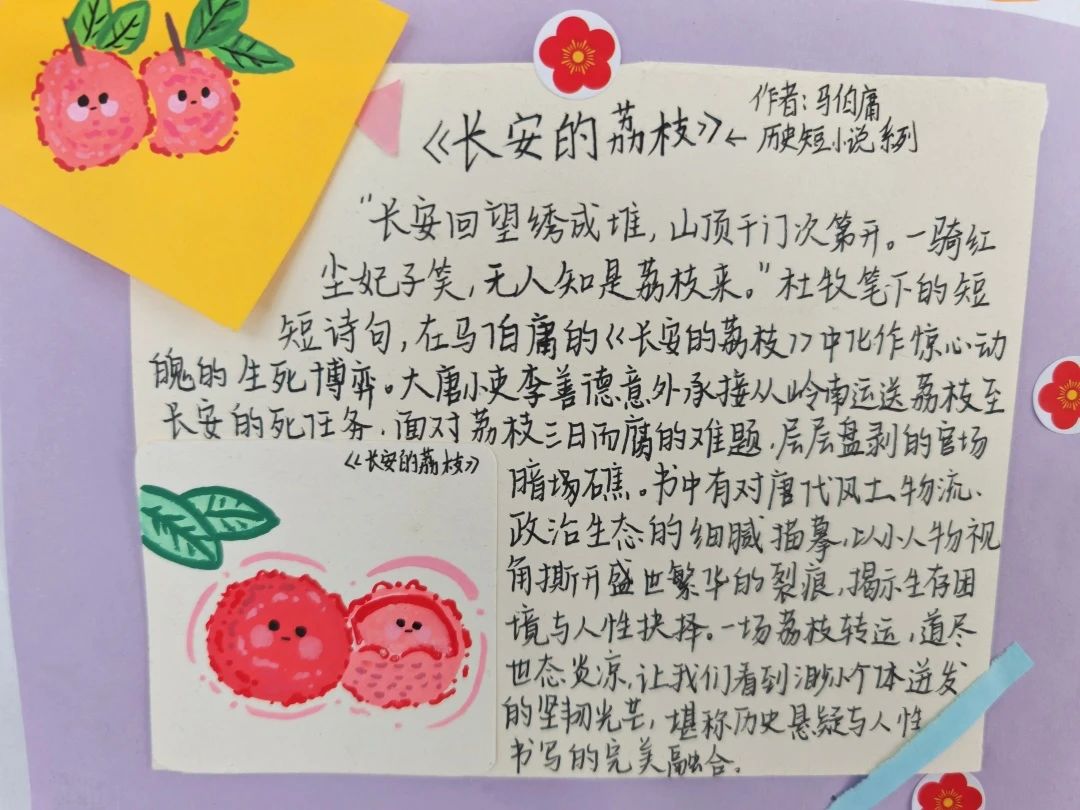 《长安的荔枝》←
作者：马伯庸
历史短小说系列
"长安回望绣成堆，山顶千门次第开。一骑红
尘妃子笑，无人知是荔枝来。"杜牧笔下的短
短诗句，在马伯庸的《长安的荔枝》中化作惊心动
魄的生死博弈。大唐小吏李善德意外承接从岭南运送荔枝至
长安的死任务，面对荔枝三日而腐的难题，层层盘剥的官场
暗场礁。书中有对唐代风土物流、
政治生态的细腻描摹，以小人物视
角撕开盛世繁华的裂痕，揭示生存困
境与人性抉择。一场荔枝转运，道尽
世态炎凉，让我们看到渺小个体迸发
的坚韧光芒，堪称历史悬疑与人性
书写的完美融合。
《长安的荔枝》